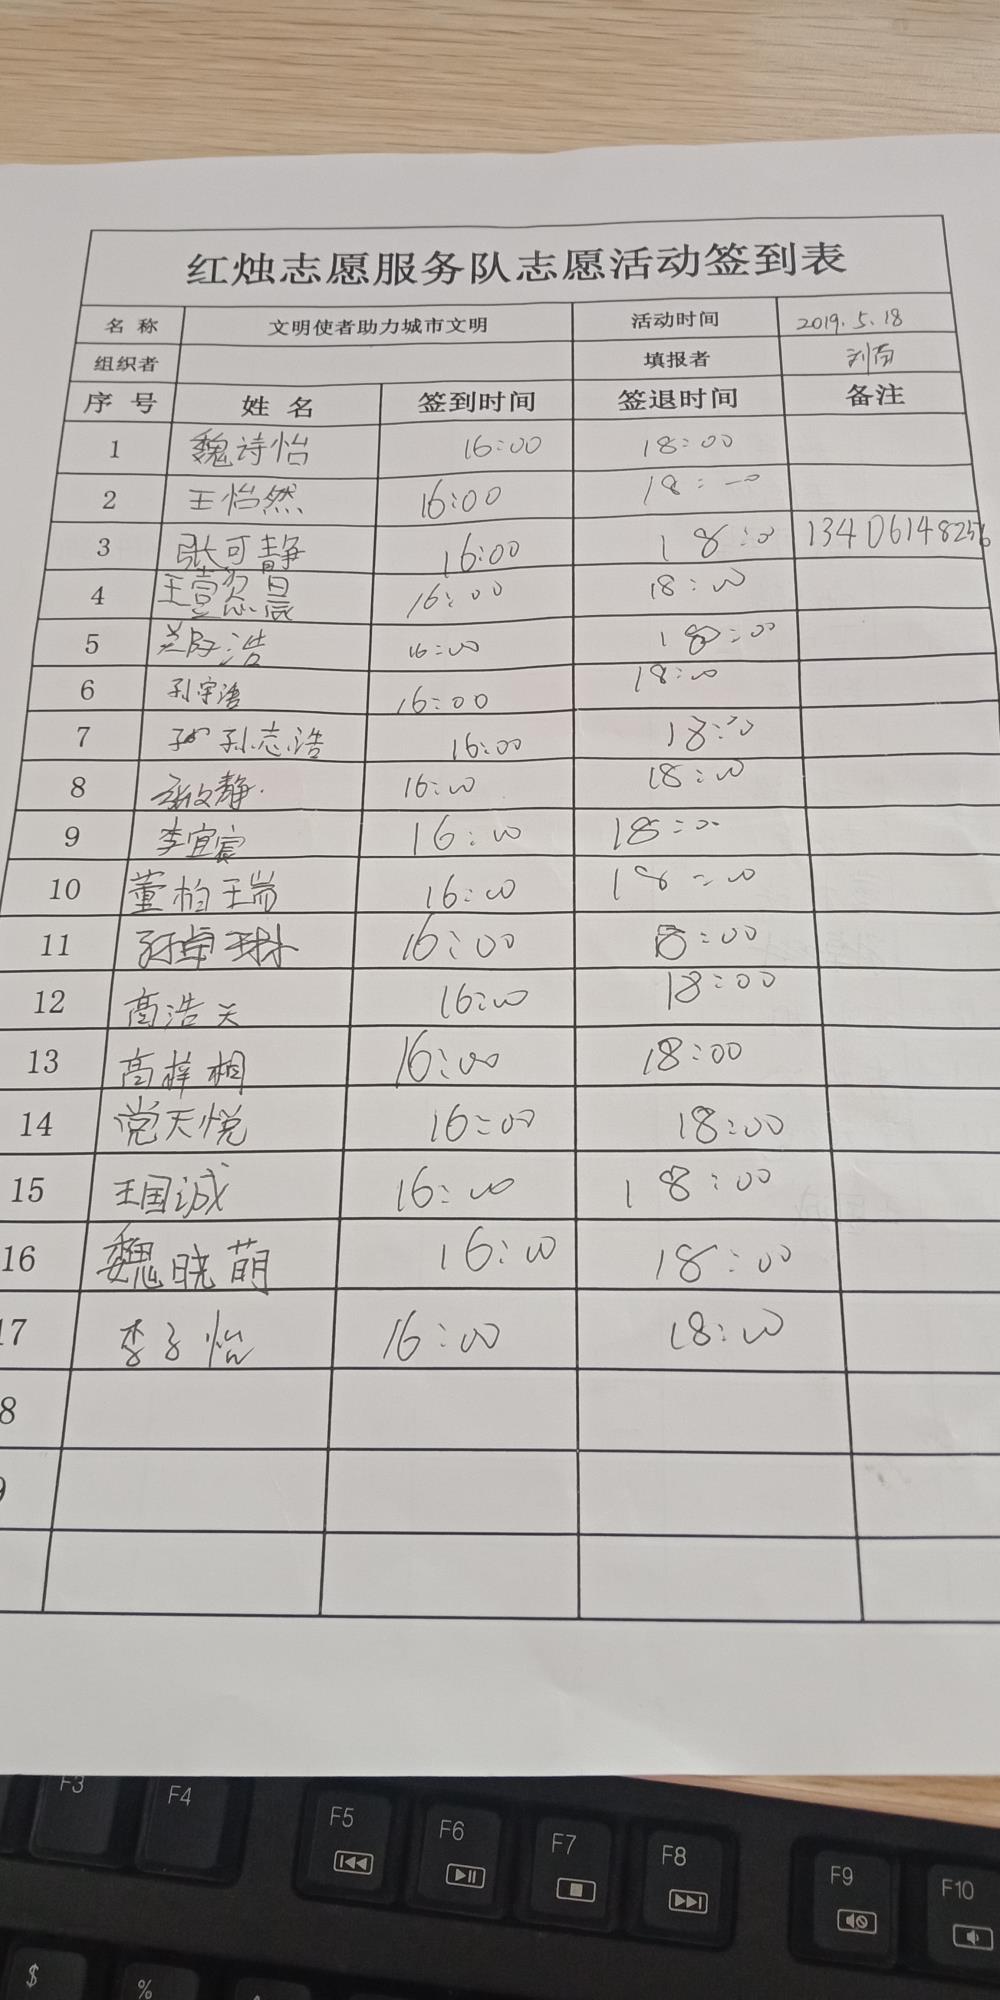 红烛志愿服务队志愿活动签到表
名 称 文明使者助力城市文明 活动时间 2019.5.18
组织者 填报者
序 号 姓 名 签到时间 签退时间 备注
1 魏诗怡 16:00 18:00
2 王怡然 16:00 18:00
3 张可静 16:00 18:00 13406148256
4 16:00 18:00
5 16:00 18:00
6 孙宇浩 16:00 18:00
7 孙志浩 16:00 18:00
8 16:00 18:00
9 李宜宸 16:00 18:00
10 董柏瑞 16:00 18:00
11 16:00 18:00
12 高浩天 16:00 18:00
13 高梓桐 16:00 18:00
14 党天悦 16:00 18:00
15 王国诚 16:00 18:00
16 魏晓萌 16:00 18:00
17 李子怡 16:00 18:00
8
9
F3 F4 F5 F6 F7 F8 F9 F10
$ %